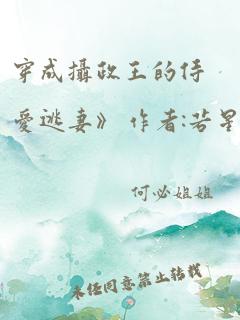 穿成攝政王的侍
愛逃妻》 作者:若星
何必姐姐
未经同意禁止转载